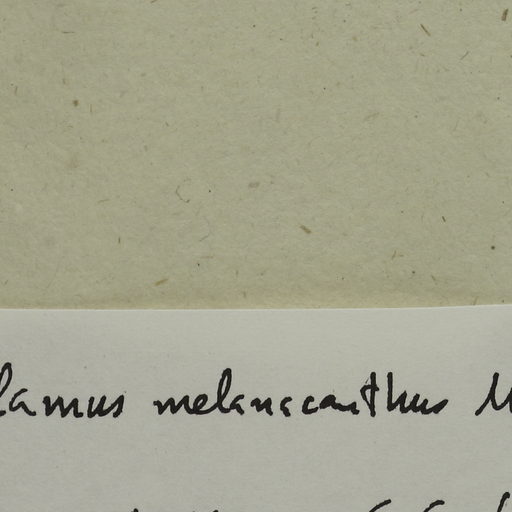 lamus melanacanthus M